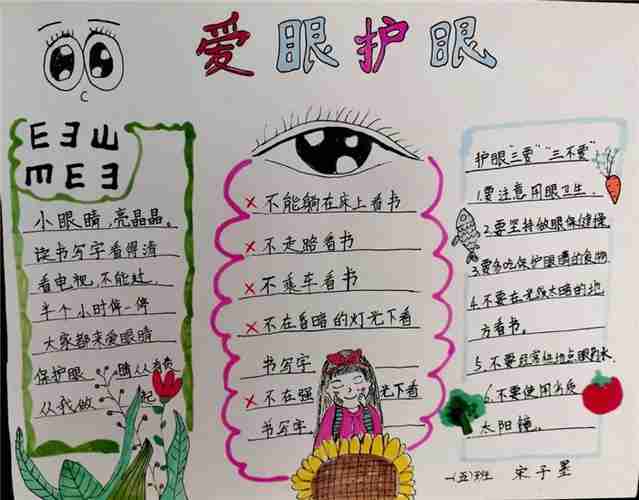 爱眼护眼
E ヨ 山
m E ヨ
小眼睛,亮晶晶。
读书写字看得清
看电视,不能过,
半个小时停一停
大家都来爱眼睛
保护眼睛从
从我做起
×不能躺在床上看书
×不走路看书
×不乘车看书
×不在昏暗的灯光下看
书写字
×不在强光下看
书写字
护眼"三要""三不要"
1.要注意用眼卫生.
2.要坚持做眼保健操
3.要多吃保护眼睛的食物
4.不要在光线太暗的地
方看书。
5.不要经常低地点眼药水
6.不要使用劣质
太阳镜.
一(五)班 宋子墨